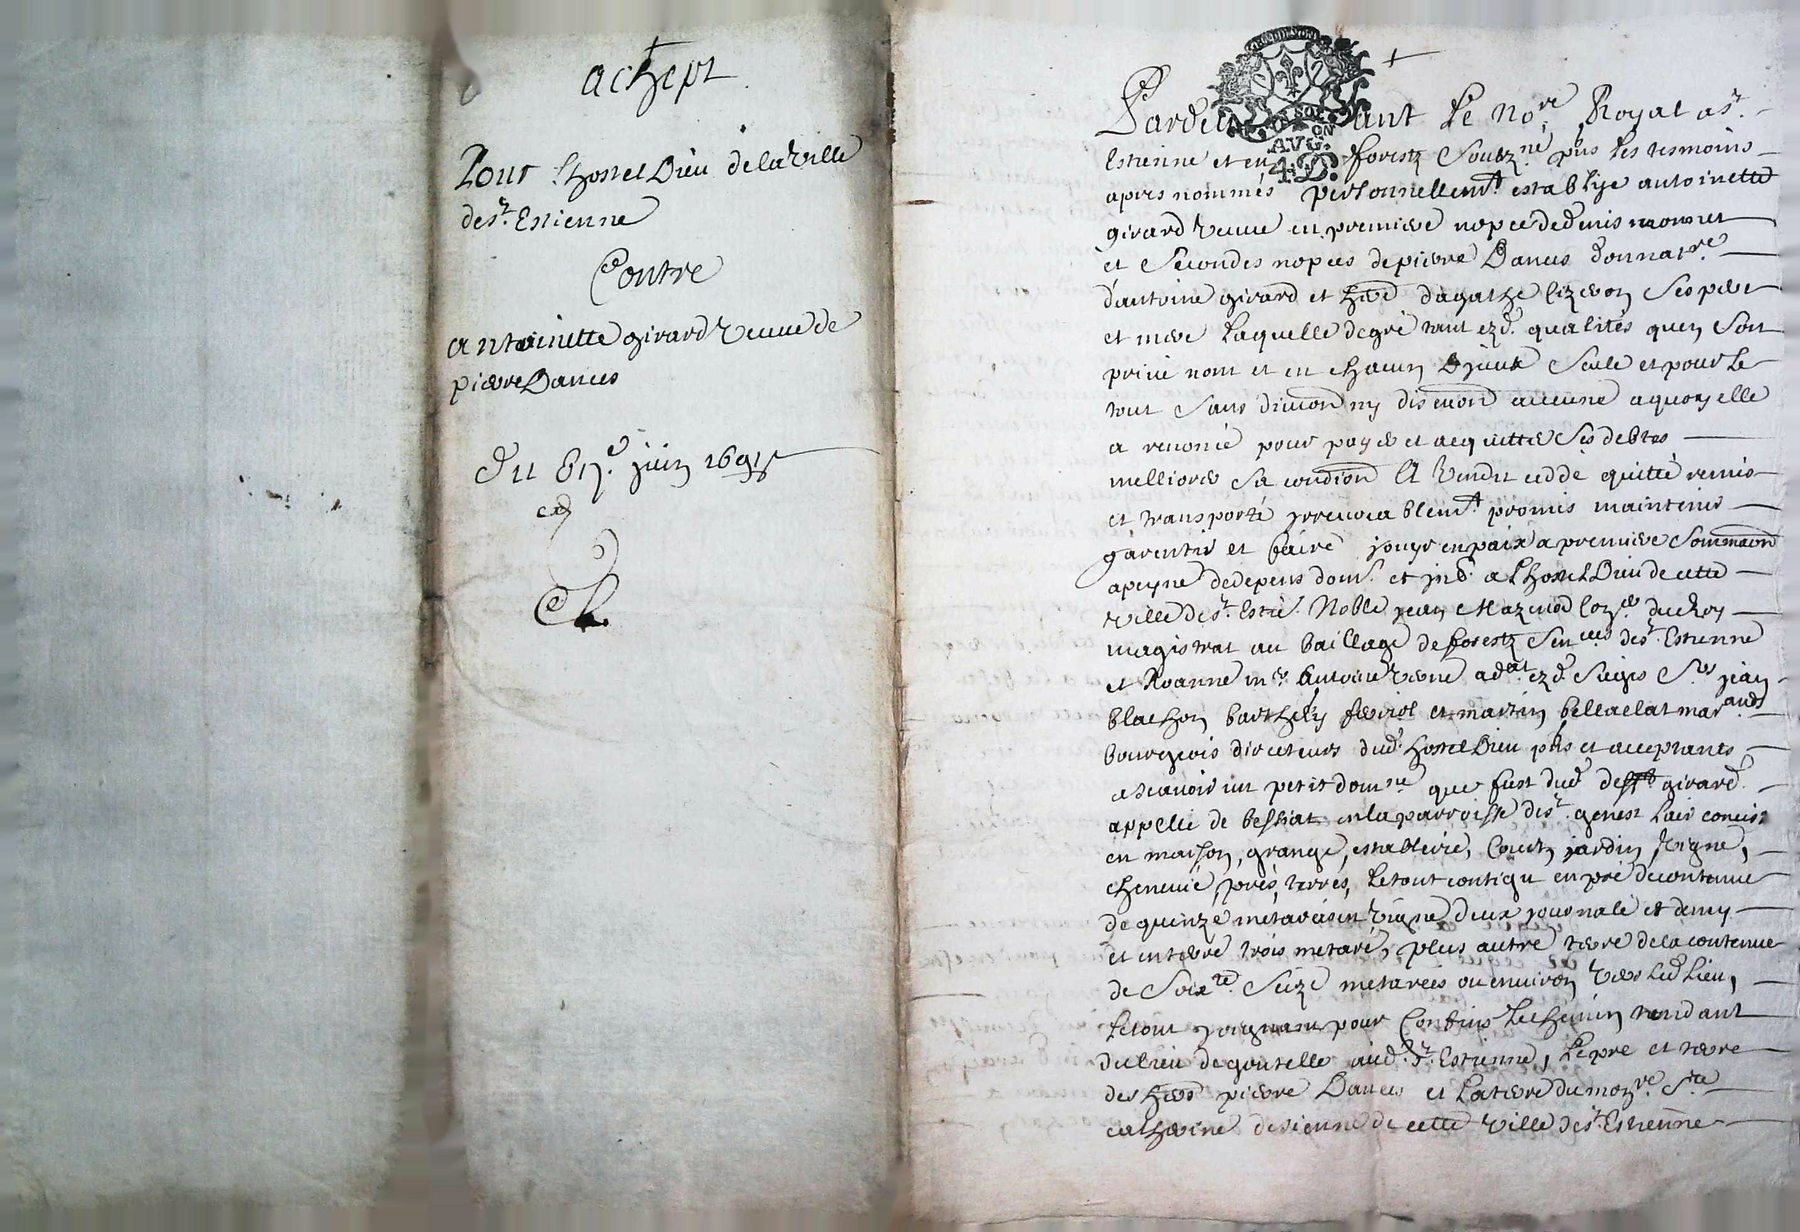 achept
Pour lhostel Dieu de la ville
de st. Estienne
Contre
antoinette girard veuve de
pierre Dancis
du juin 1691
Pardevant le nore Royal a st.
Estienne et en forestz soubzne. pns les tesmoins
apres nommés personnellemt establye antoinette
girard veuve en premiere nopce de denis
et secondes nopces de pierre Dancis donnatre
d'antoine girard et d'agathe ses pere
et mere laquelle de gré tant ezd. qualités quen son
privé nom et en chacun d'jceux seule et pour le
tout sans division ny discution aucune a quoy elle
a renoncé pour payer et acquitter ses debtes
melliorer sa condition A vendu cedde quitté remis
et transporté jrrevocablemt. promis maintenir
garentir et faire jouyr en paix a premiere sommaon
a peyne de depens dom. et jnt. a Lhostel Dieu de cette
ville de st. Esti. Noble jean Mazenod Conser du Roy
magistrat au baillage de forestz senées de st. Estienne
et Roanne me. Antoine adat. ezd. sieges Srs jean
blachon barthely ferriol et martin bellaclat marands
bourgeois directeurs dud. hostel Dieu pns et acceptants
a scavoir un petit domne que fust dud. deff girard
appellé de bessiat en la parroisse de st. genest lair concis.
en maison, grange, establerie, Court, jardin, vigne,
chenevié, prés, terres, le tout contigu en pré de contenue
de quinze metarées en vigne deux journals et demy
et en terre trois metaré, plus autre terre de la contenue
de Soixte. Seize metarées ou environ vers led. Lieu,
le tout joignant pour Confins le chemin tendant
du lieu de goutelle aud. st. Estienne, le pre et terre
des hers pierre Dancis et la terre du monre Ste
catherine de sienne de cette ville de st. Estienne
AVG.
4 D.